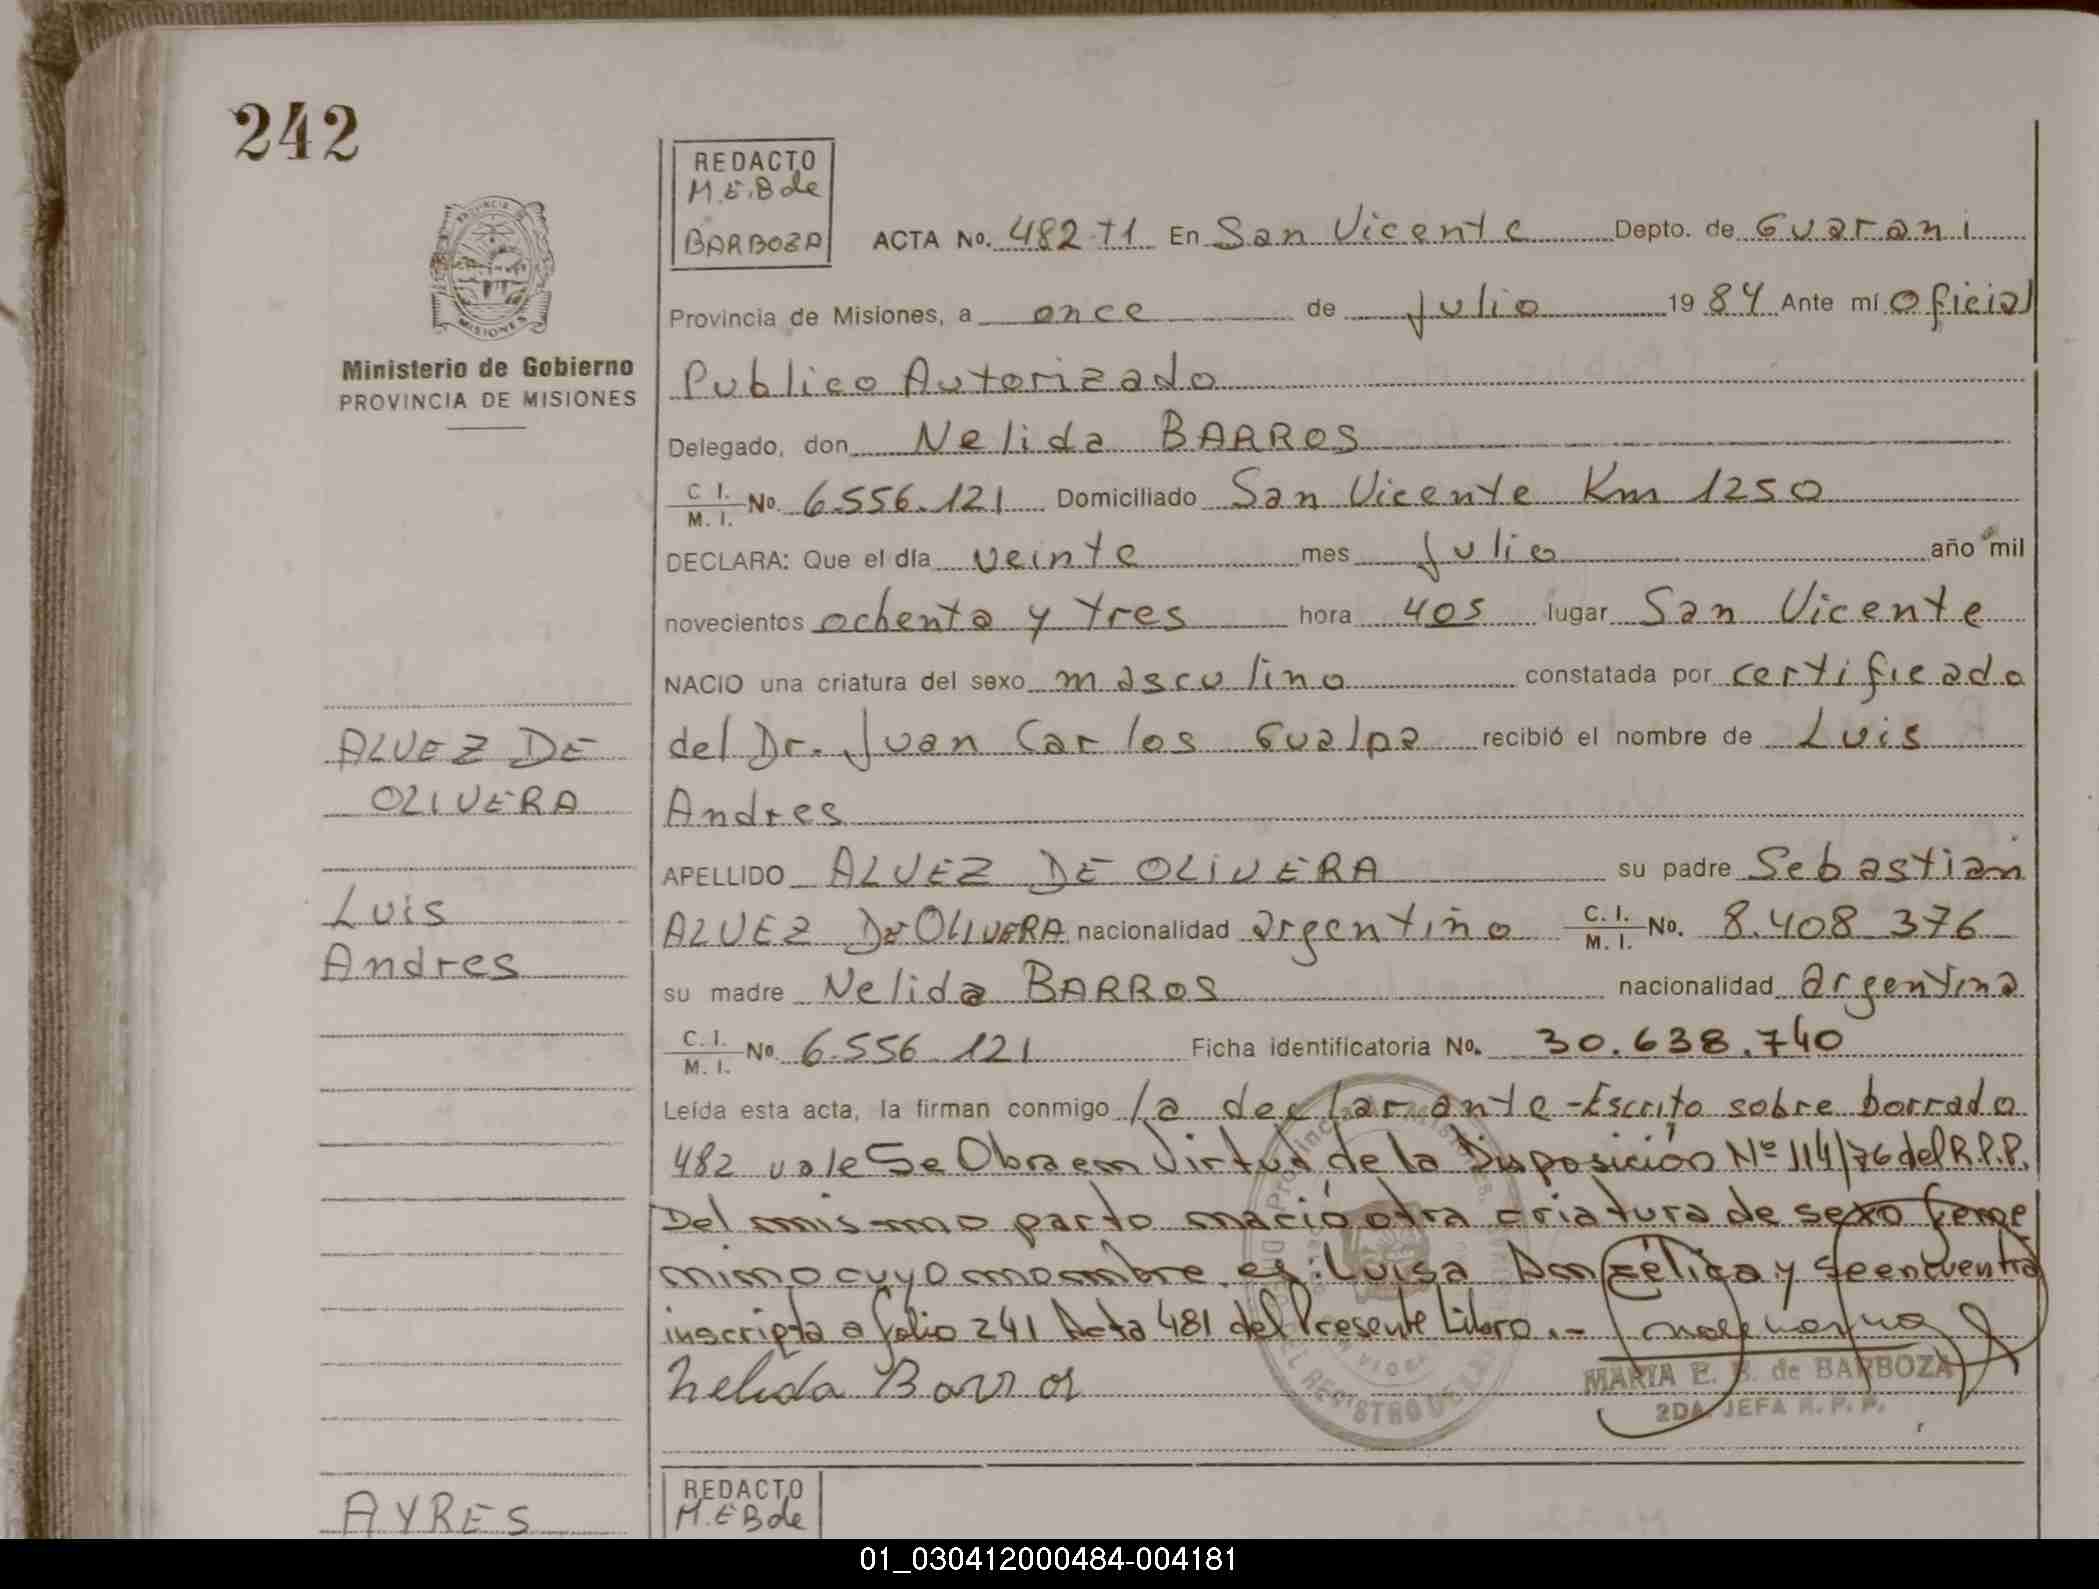 242
REDACTO
M.E.B de
BARBOZA
ACTA No. 482 T1 En San Vicente Depto. de Guarani
PROVINCIA DE
MISIONES
Ministerio de Gobierno
PROVINCIA DE MISIONES
Provincia de Misiones, a once de Julio 1984 Ante mí Oficial
Publico Autorizado
Delegado, don Nelida BARROS
C.I. M.I. No. 6.556.121 Domiciliado San Vicente Km 1250
DECLARA: Que el día veinte mes Julio año mil
novecientos ochenta y tres hora 405 lugar San Vicente
NACIO una criatura del sexo masculino constatada por certificado
del Dr. Juan Carlos Gualpa recibió el nombre de Luis
Andres
APELLIDO ALVEZ DE OLIVERA su padre Sebastian
ALVEZ DE OLIVERA nacionalidad argentino C.I. M.I. No. 8.408 376
su madre Nelida BARROS nacionalidad argentina
C.I. M.I. No. 6.556.121 Ficha identificatoria No. 30.638.740
Leída esta acta, la firman conmigo la declarante - Escrito sobre borrado
482 vale Se Obra en Virtud de la Disposición Nº 114/76 del R.P.P.
Del mismo parto nació otra criatura de sexo feme
nino cuyo nombre es: Luisa Angélica y se encuentra
inscripta a folio 241 Acta 481 del Presente Libro.-
Nelida Barros
MARIA E. B. de BARBOZA
2DA. JEFA R. P. P.
ALVEZ DE
OLIVERA
Luis
Andres
AYRES
REDACTO
M.E B de
01_030412000484-004181